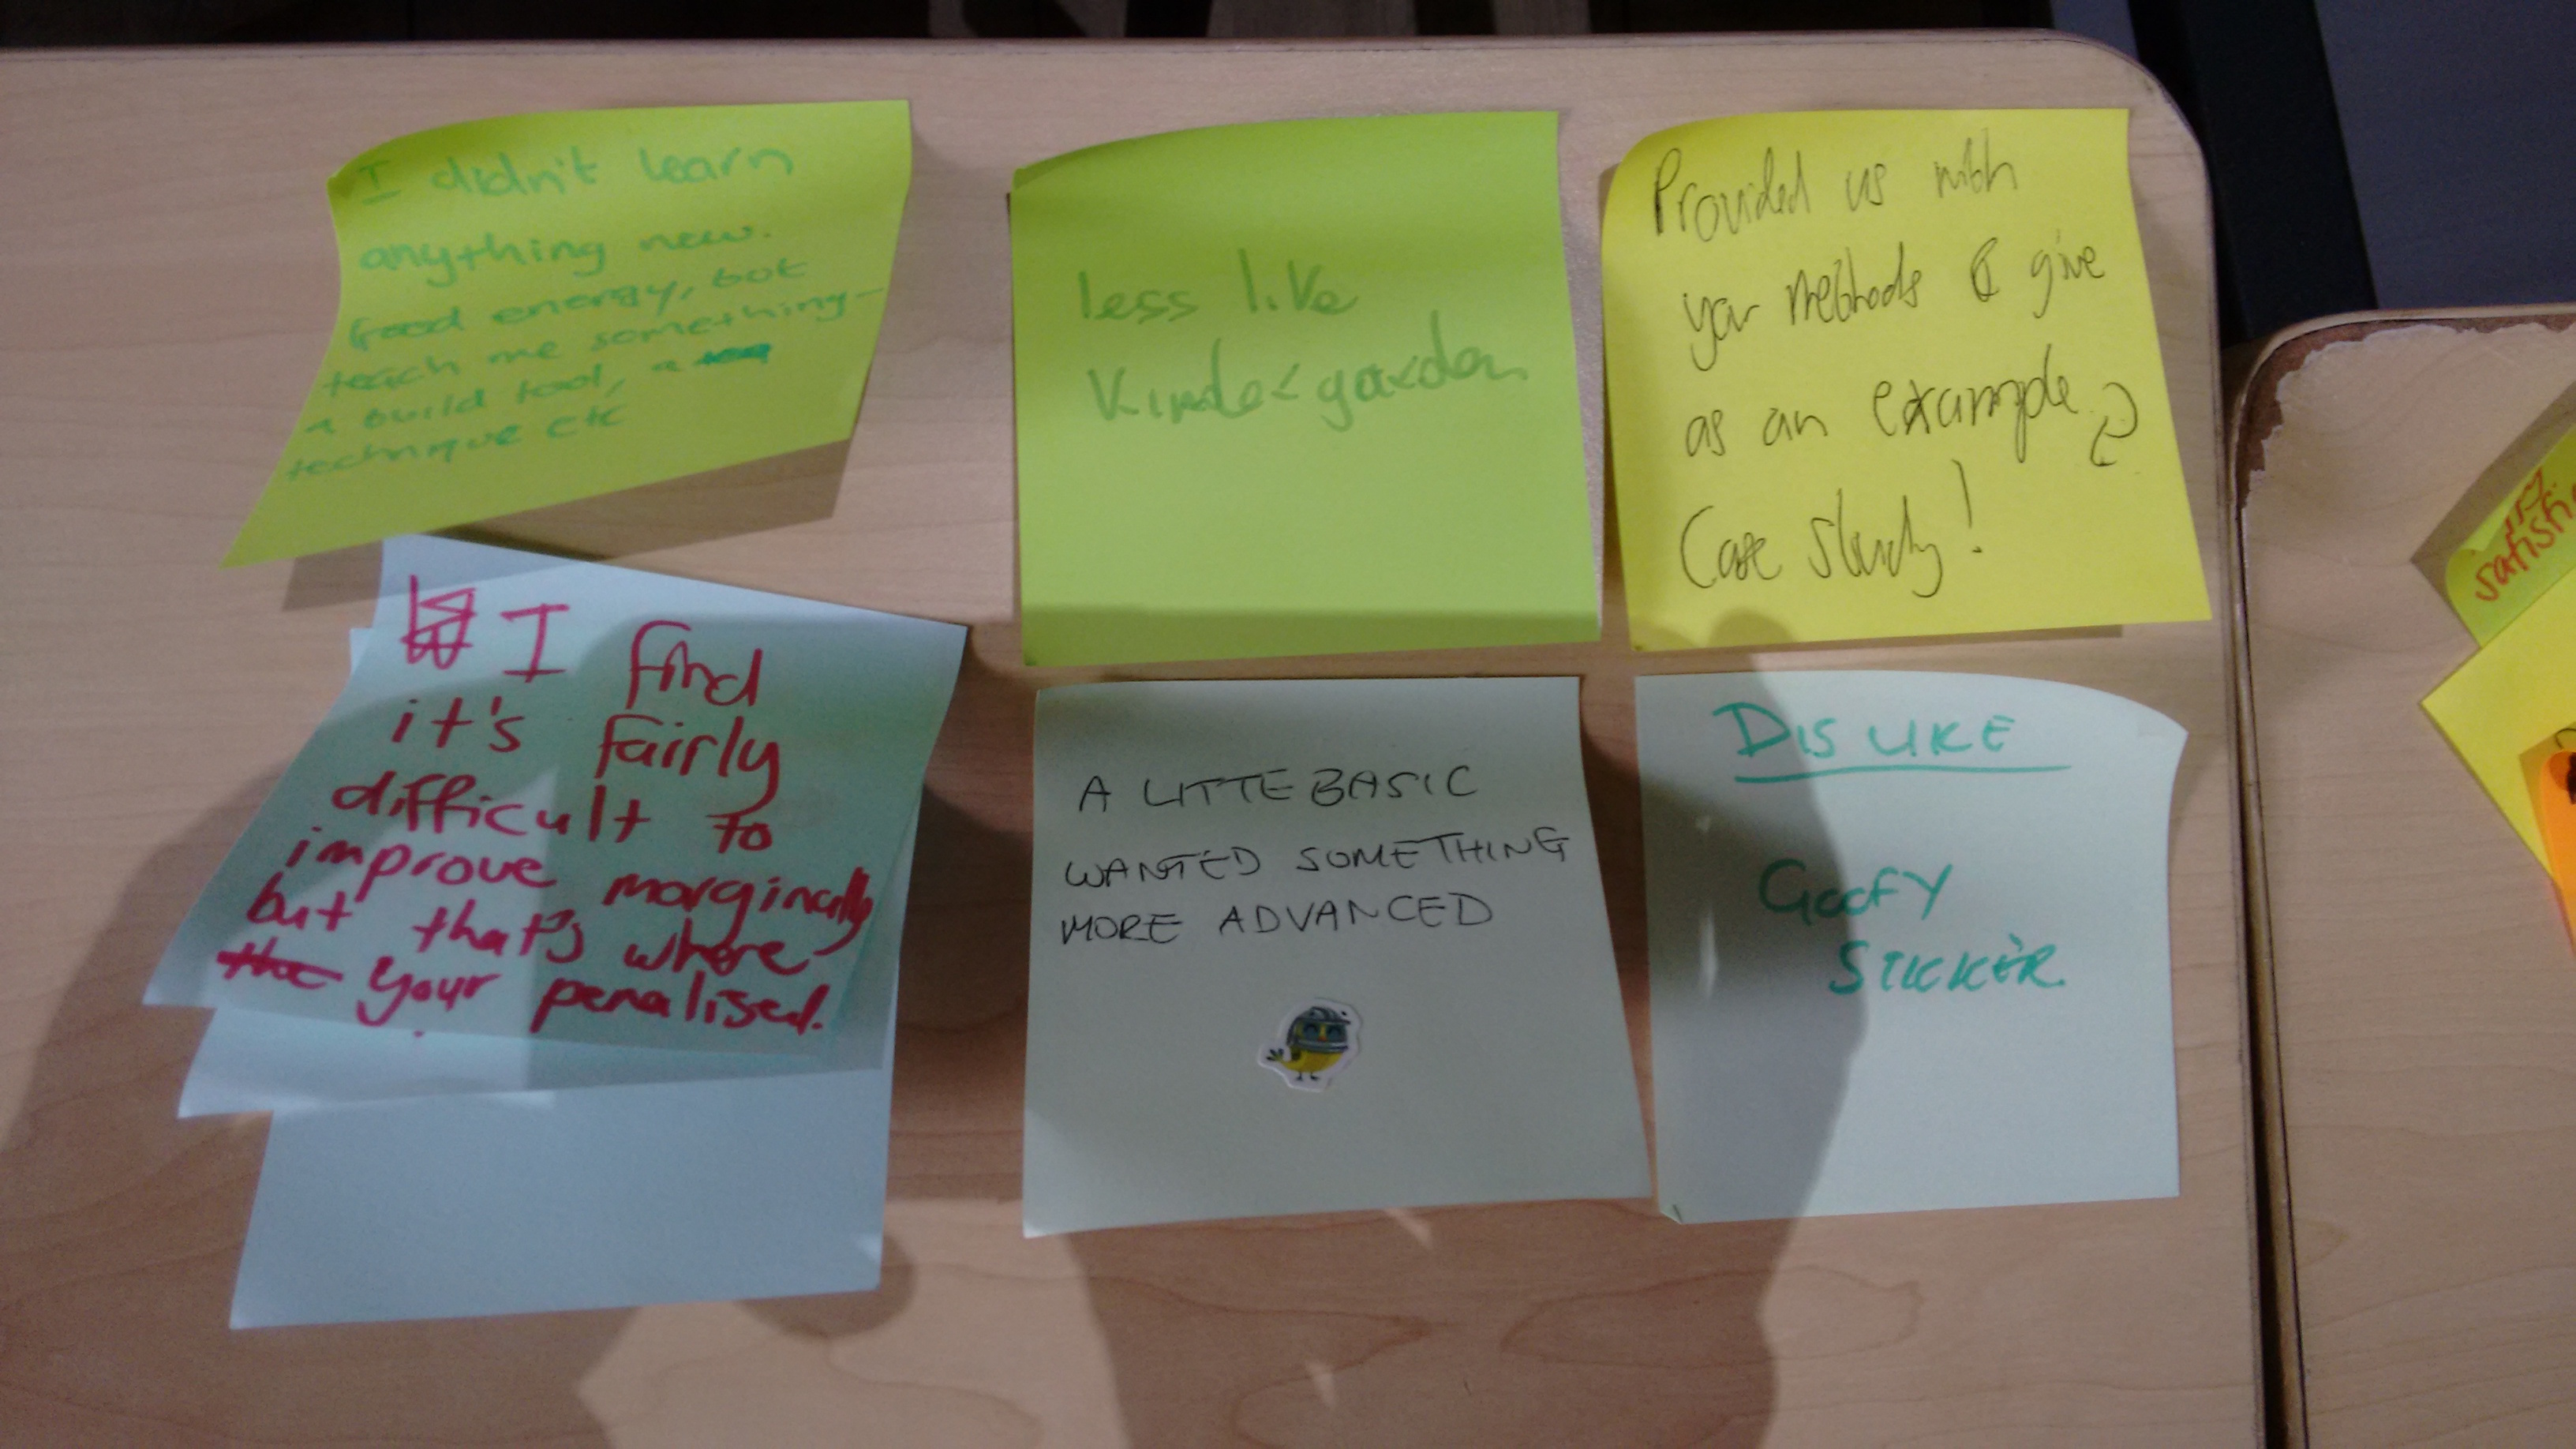 I didn't learn
anything new.
Good energy, but
teach me something -
a build tool, a
technique etc
less like
Kindergarden
Provided us with
your methods & give
as an example
Case study!
I find
it's fairly
difficult to
improve marginally
but that's where
your penalised.
A LITTE BASIC
WANTED SOMETHING
MORE ADVANCED
DISLIKE
GOOFY
STICKER
satisfi